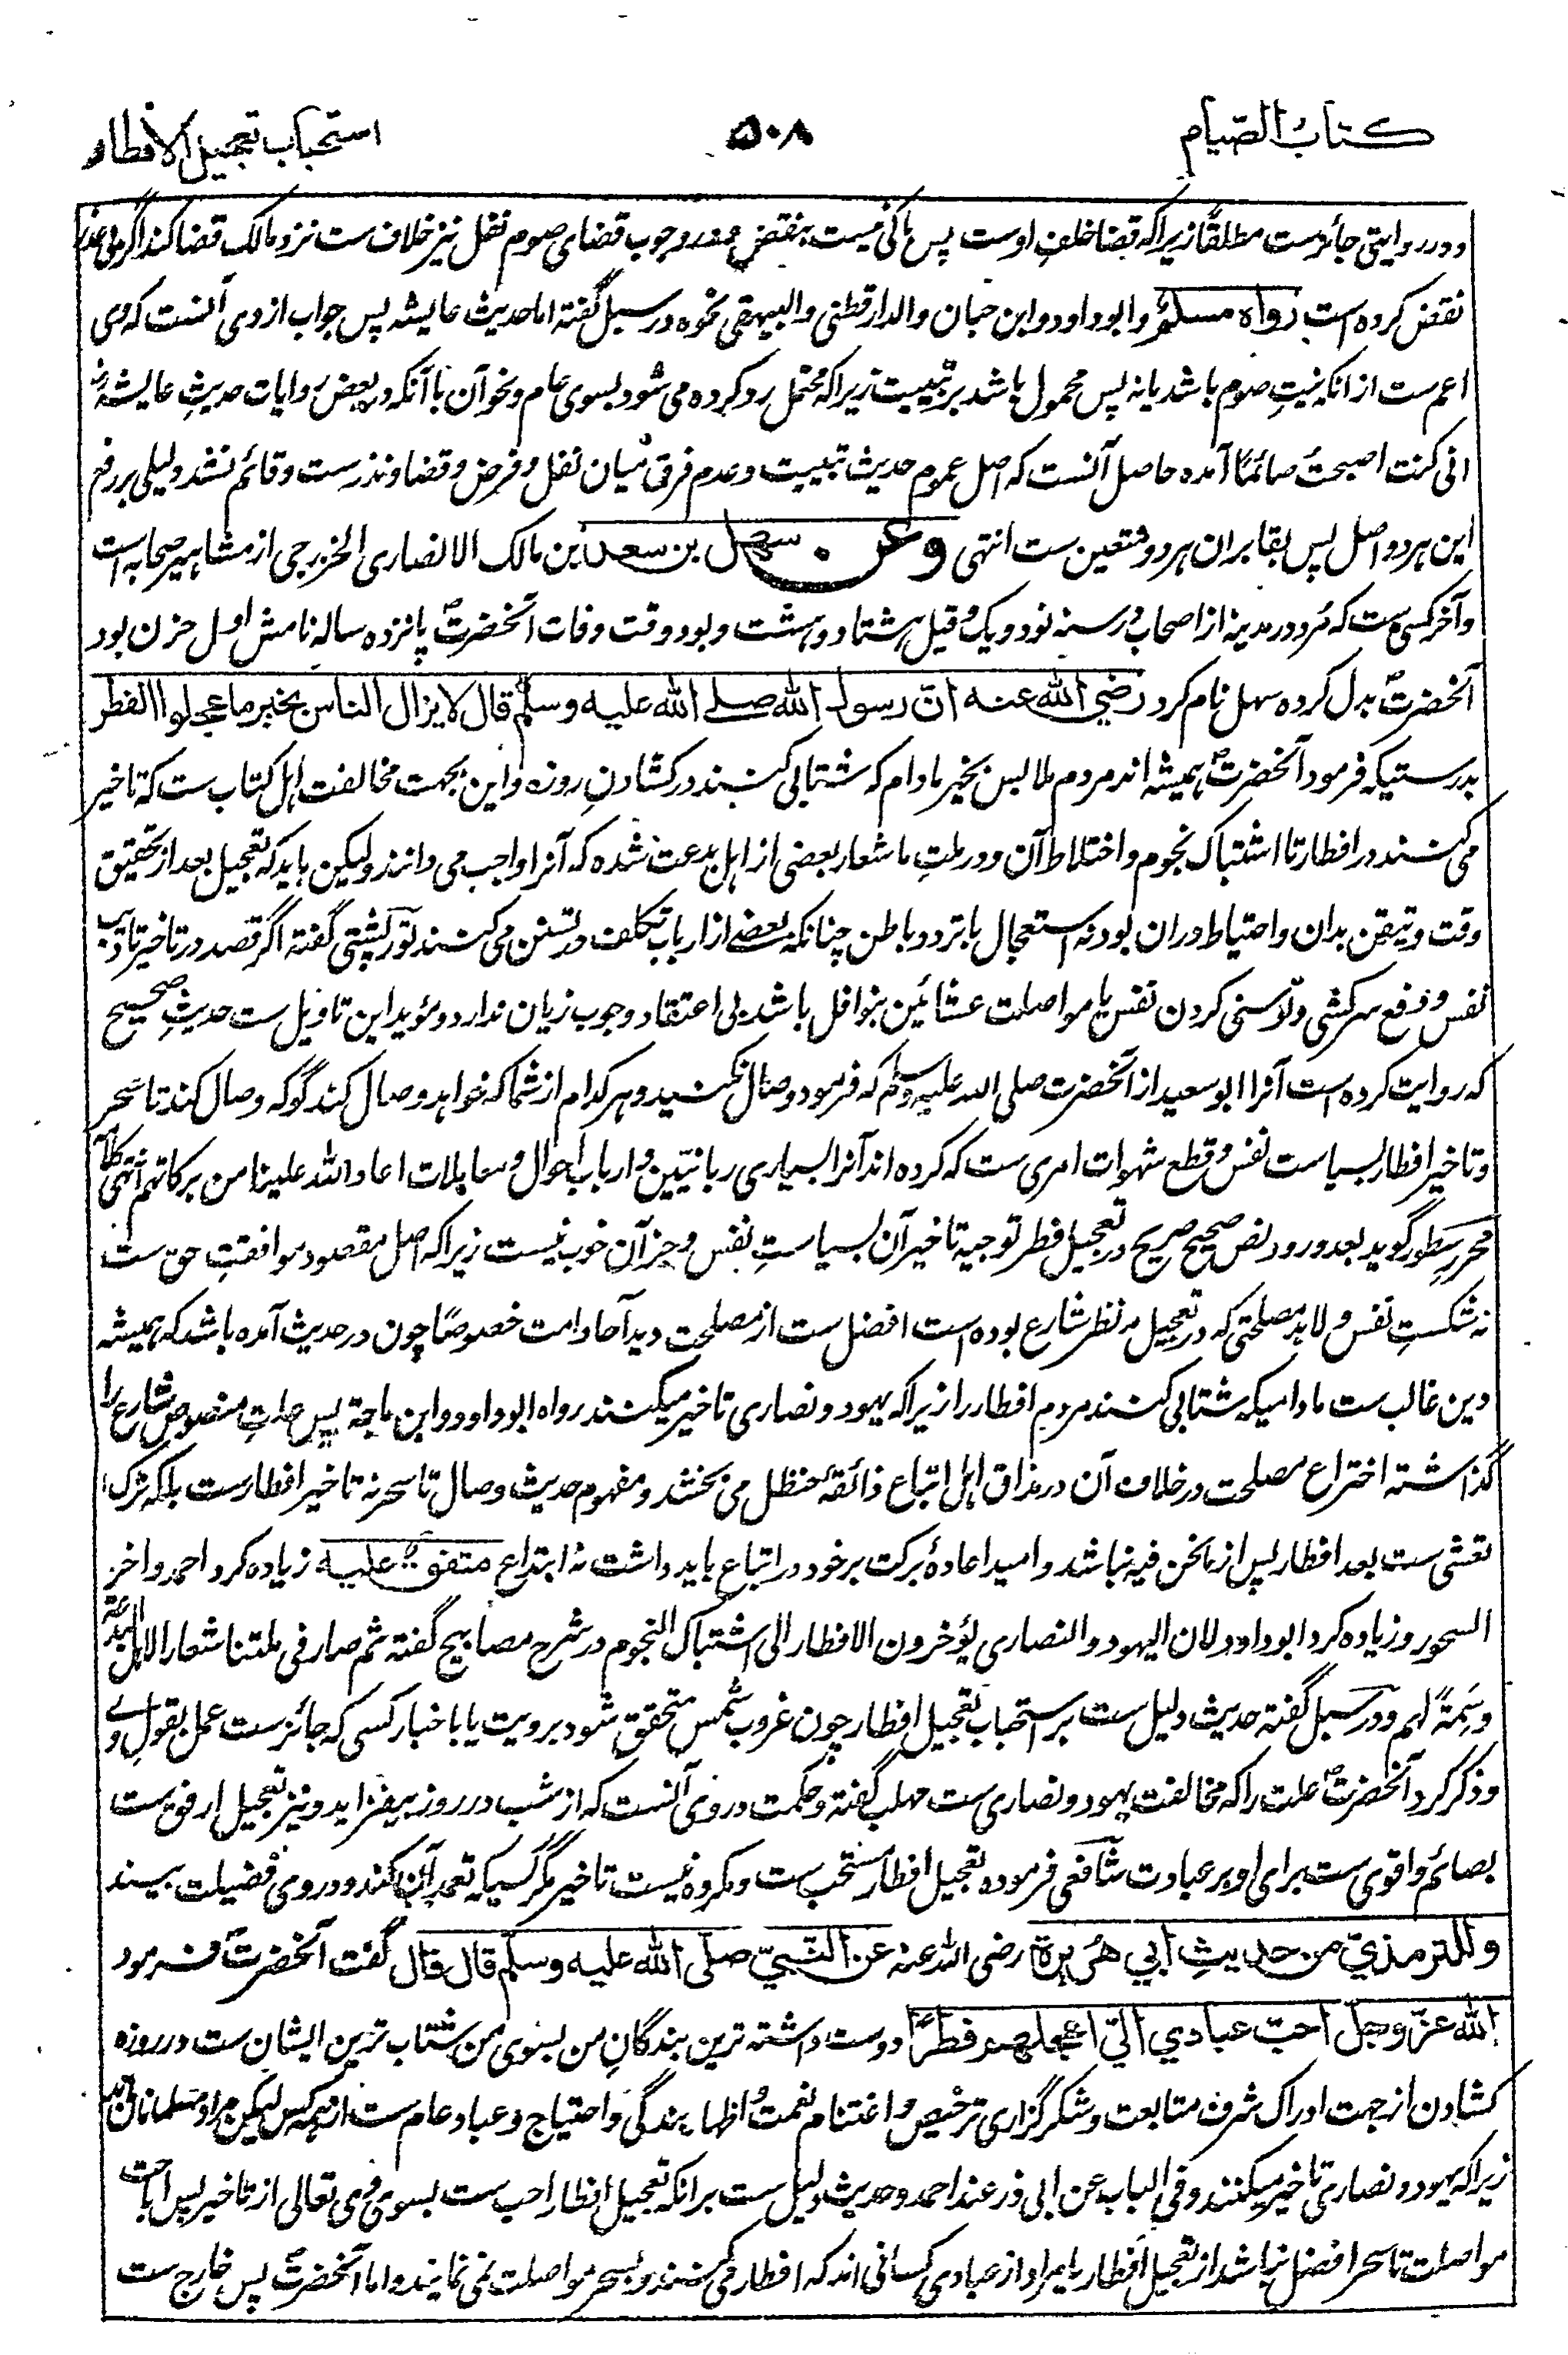 کتاب الصیام
۵۰۸
استحباب تعجیل الافطار
و در روایتی جائزست مطلقاً زیراکه قضا خلفِ اوست پس باکی نیست بنقض و در وجوب قضای صوم نفل نیز خلاف ست نزد مالک قضا کند اگر بی عذر
نقض کرده است رواه مسلم و ابوداود و ابن حبان والدارقطنی والبیهقی نحوه در سبل گفته اما حدیث عایشه پس جواب ازوی آنست که وی
اعم ست از انکه نیتِ صوم باشد یا نه پس محمول باشد بر تبییت زیراکه محتمل رد کرده می شود بسوی عام و نحو آن باآنکه در بعض روایات حدیثِ عایشه رض
انی کنت اصبحت صائما آمده حاصل آنست که اصل عموم حدیث تبییت و عدم فرق میان نفل و فرض و قضا و نذرست و قائم نشد دلیلی بر رفع
این هر دو اصل پس بقا بران هر دو متعین ست انتهی وعن سهل بن سعد بن مالک الانصاری الخزرجی از مشاهیر صحابه است
و آخر کسی ست که مرد در مدینه از اصحاب در سنه نود و یک و قیل هشتاد و هشت و بود وقت وفات آنحضرتؐ پانزده ساله نامش اول حزن بود
آنحضرتؐ بدل کرده سهل نام کرد رضی الله عنه انّ رسول الله صلی الله علیه وسلم قال لایزال الناس بخیر ما عجلوا الفطر
بدرستیکه فرمود آنحضرتؐ همیشه اند مردم ملابس بخیر مادام که شتابی کنند در کشادنِ روزه و این بجهت مخالفت اهل کتاب ست که تاخیر
می کنند در افطار تا اشتباک نجوم و اختلاط آن و در ملتِ ما شعار بعضی از اهل بدعت شده که آنرا واجب می دانند و لیکن باید که تعجیل بعد از تحقیق
وقت و تیقن بدان و احتیاط دران بود نه استعجال باتردد باطن چنانکه بعضے از ارباب تکلف در تسنن می کنند تورپشتی گفته اگر قصد در تاخیر تادیب
نفس و دفع سرکشی و توسنی کردن نفس یا مواصلت عشائین بنوافل باشد بی اعتقاد وجوب زیان ندارد و مؤید این تاویل ست حدیثِ صحیح
که روایت کرده است آنرا ابوسعید از آنحضرت صلی الله علیه وسلم که فرمود وصال نکنید و هر کدام از شما که خواهد وصال کند گو که وصال کند تا سحر
و تاخیر افطار بسیاست نفس و قطع شهوات امری ست که کرده اند آنرا بسیاری ربانیّین و ارباب احوال و معاملات اعاد الله علینا من برکاتهم انتهی کلامه
محرر سطور گوید بعد ورود نص صحیح صریح در تعجیل فطر توجیه تاخیر آن بسیاستِ نفس و جز آن خوب نیست زیراکه اصل مقصود موافقتِ حق ست
نه شکستِ نفس و لابد مصلحتی که در تعجیل مد نظر شارع بوده است افضل ست از مصلحت دید آحاد امت خصوصًا چون در حدیث آمده باشد که همیشه
دین غالب ست مادامیکه شتابی کنند مردم افطار را زیراکه یهود و نصاری تاخیر میکنند رواه ابوداود و ابن ماجة پس علتِ منصوص شارع را
گذاشته اختراع مصلحت در خلاف آن در مذاق اهل اتباع ذائقۀ حنظل می بخشد و مفهوم حدیث وصال تا سحر نه تاخیر افطارست بلکه ترک
تعشی ست بعد افطار پس از مانحن فیه نباشد و امید اعادۀ برکت بر خود در اتباع باید داشت نه ابتداع متفق علیه زیاده کرد احمد و اخر
السحور و زیاده کرد ابوداود لان الیهود والنصاری یؤخرون الافطار الی اشتباک النجوم در شرح مصابیح گفته ثم صار فی ملتنا شعارا لاهل البدعة
وسِمةً لهم و در سبل گفته حدیث دلیل ست بر استحباب تعجیل افطار چون غروب شمس متحقق شود برویت یا باخبار کسی که جائزست عمل بقول وے
و ذکر کرد آنحضرتؐ علت را که مخالفت یهود و نصاری ست مهلب گفته و حکمت دروی آنست که از شب در روز نیفزاید و نیز تعجیل ارفق ست
بصائم و اقوی ست برای او بر عبادت شافعی فرموده تعجیل افطار مستحب ست و مکروه نیست تاخیر مگر کسیکه تعمد آن کند و در وی فضیلت بیند
وللترمذیّ من حدیثِ ابی هُریرة رضی الله عنه عن النّبیّ صلی الله علیه وسلم قال قال گفت آنحضرتؐ فرمود
الله عزّ وجلّ احبّ عبادی الیّ اعجلهم فطرًا دوست داشته ترین بندگانِ من بسوی من شتاب ترین ایشان ست در روزه
کشادن از جهت ادراک شرف متابعت و شکر گزاری ترخیص و اغتنام نعمت و اظهار بندگی و احتیاج و عباد عام ست از همه کس لیکن مراد مسلمانان اند
زیراکه یهود و نصاری تاخیر میکنند و فی الباب عن ابی ذر عند احمد و حدیث دلیل ست برانکه تعجیل افطار احب ست بسوی وی تعالی از تاخیر پس اباحت
مواصلت تا سحر افضل نباشد از تعجیل افطار یا مراد از عبادی کسانی اند که افطار می کنند و بسحر مواصلت نمی نمایند و اما آنحضرتؐ پس خارج ست